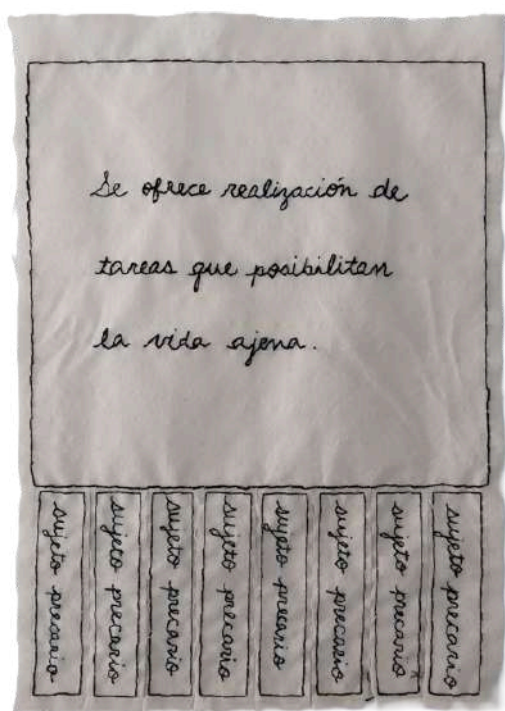 Se ofrece realización de
tareas que posibilitan
la vida ajena.
sujeto precario
sujeto precario
sujeto precario
sujeto precario
sujeto precario
sujeto precario
sujeto precario
sujeto precario